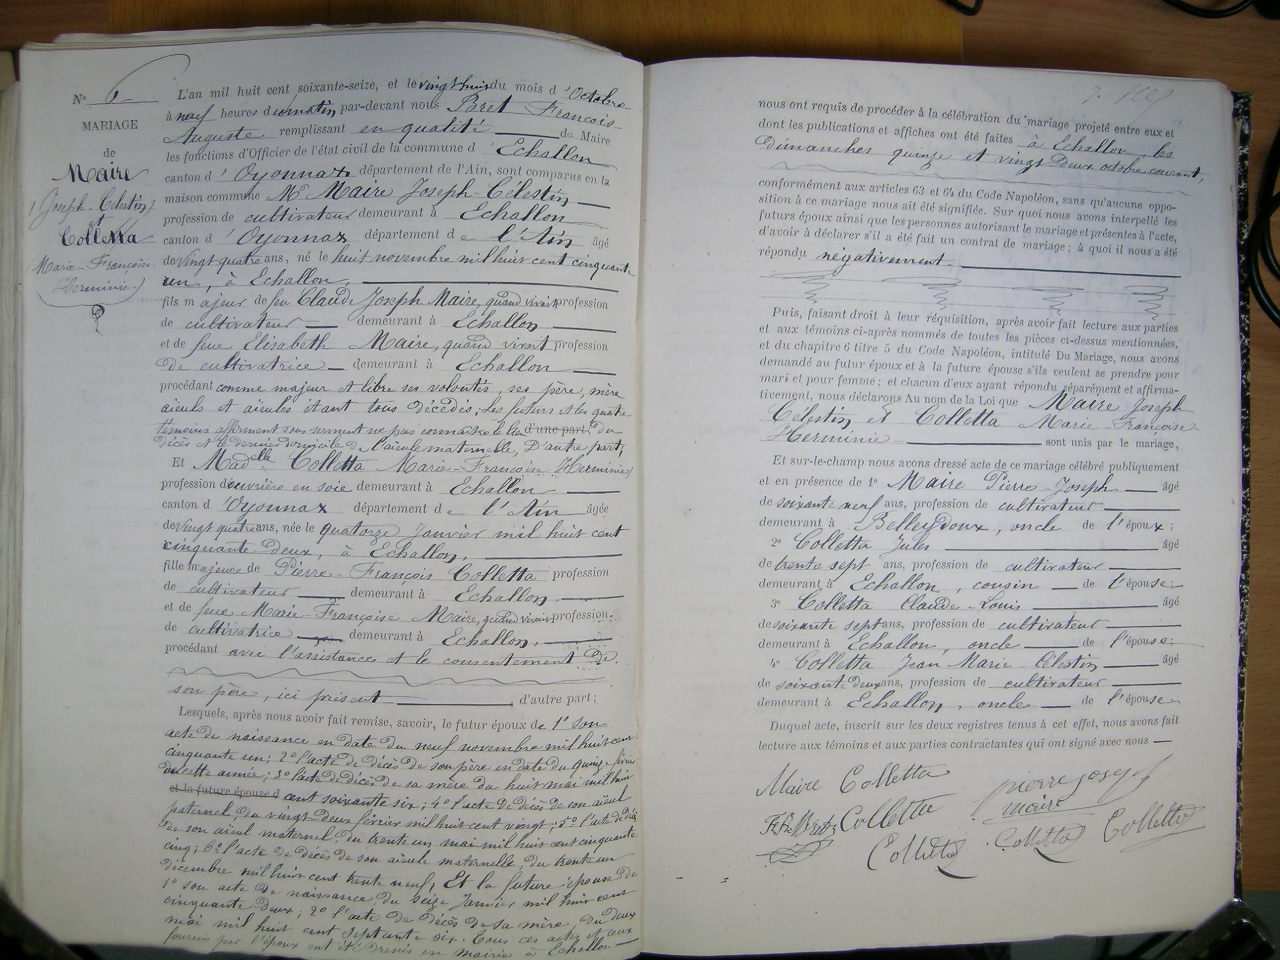 N° 6
MARIAGE
de
Maire
(Joseph-Célestin)
et
Colletta
(Marie-Françoise
Herminie)
L'an mil huit cent soixante-seize, et le vingt huit du mois d'Octobre
à neuf heures du matin par-devant nous Paret François
Auguste remplissant en qualité de Maire
les fonctions d'Officier de l'état civil de la commune d'Echallon
canton d'Oyonnax département de l'Ain, sont comparus en la
maison commune Mr Maire Joseph-Célestin
profession de cultivateur demeurant à Echallon
canton d'Oyonnax département de l'Ain âgé
de vingt quatre ans, né le huit novembre mil huit cent cinquante
un, à Echallon,
fils majeur de feu Claude Joseph Maire, quand vivait profession
de cultivateur demeurant à Echallon
et de feue Elisabeth Maire, quand vivait profession
de cultivatrice demeurant à Echallon
procédant comme majeur et libre ses volontés, ses père, mère
aïeuls et aïeules étant tous décédés; les futurs et les quatre
témoins affirment sous serment ne pas connaître le lieu d'une part, du
décès et le dernier domicile de l'aïeule maternelle, D'autre part,
Et Madelle Colletta Marie-Françoise Herminie
profession d'ouvrière en soie demeurant à Echallon
canton d'Oyonnax département de l'Ain âgée
de vingt quatre ans, née le quatorze Janvier mil huit cent
cinquante deux, à Echallon,
fille majeure de Pierre-François Colletta profession
de cultivateur demeurant à Echallon
et de feue Marie-Françoise Maire, quand vivait profession
de cultivatrice demeurant à Echallon,
procédant avec l'assistance et le consentement de
son père, ici présent d'autre part;
Lesquels, après nous avoir fait remise, savoir, le futur époux de 1° son
acte de naissance en date du neuf novembre mil huit cent
cinquante un; 2° l'acte de décès de son père en date du quinze
de cette année; 3° l'acte de décès de sa mère du huit mai mil huit
et la future épouse d cent soixante six; 4° l'acte de décès de son aïeul
paternel, du vingt deux février mil huit cent vingt; 5° l'acte de décès
de son aïeul maternel, du trente un mai mil huit cent cinquante
cinq; 6° l'acte de décès de son aïeule maternelle, du trente un
décembre mil huit cent trente neuf; Et la future épouse de
1° son acte de naissance du seize Janvier mil huit cent
cinquante deux; 2° l'acte de décès de sa mère, du deux
mai mil huit cent septante six. Tous ces actes et ceux
fournis par l'époux ont été dressés en mairie à Echallon
nous ont requis de procéder à la célébration du mariage projeté entre eux et
dont les publications et affiches ont été faites à Echallon les
dimanches quinze et vingt Deux octobre courant,
conformément aux articles 63 et 64 du Code Napoléon, sans qu'aucune oppo-
sition à ce mariage nous ait été signifiée. Sur quoi nous avons interpellé les
futurs époux ainsi que les personnes autorisant le mariage et présentes à l'acte,
d'avoir à déclarer s'il a été fait un contrat de mariage; à quoi il nous a été
répondu négativement
Puis, faisant droit à leur réquisition, après avoir fait lecture aux parties
et aux témoins ci-après nommés de toutes les pièces ci-dessus mentionnées,
et du chapitre 6 titre 5 du Code Napoléon, intitulé Du Mariage, nous avons
demandé au futur époux et à la future épouse s'ils veulent se prendre pour
mari et pour femme; et chacun d'eux ayant répondu séparément et affirma-
tivement, nous déclarons Au nom de la Loi que Maire Joseph
Célestin et Colletta Marie-Françoise
Herminie sont unis par le mariage,
Et sur-le-champ nous avons dressé acte de ce mariage célébré publiquement
et en présence de 1° Maire Pierre-Joseph âgé
de soixante neuf ans, profession de cultivateur
demeurant à Belleydoux, oncle de l'époux;
2° Colletta Jules âgé
de trente sept ans, profession de cultivateur
demeurant à Echallon, cousin de l'épouse
3° Colletta Claude-Louis âgé
de soixante sept ans, profession de cultivateur
demeurant à Echallon, oncle de l'épouse
4° Colletta Jean Marie Célestin âgé
de soixante deux ans, profession de cultivateur
demeurant à Echallon, oncle de l'épouse
Duquel acte, inscrit sur les deux registres tenus à cet effet, nous avons fait
lecture aux témoins et aux parties contractantes qui ont signé avec nous
Maire Colletta pierre joseph
maire
Colletta
Colletta Colletta Colletta